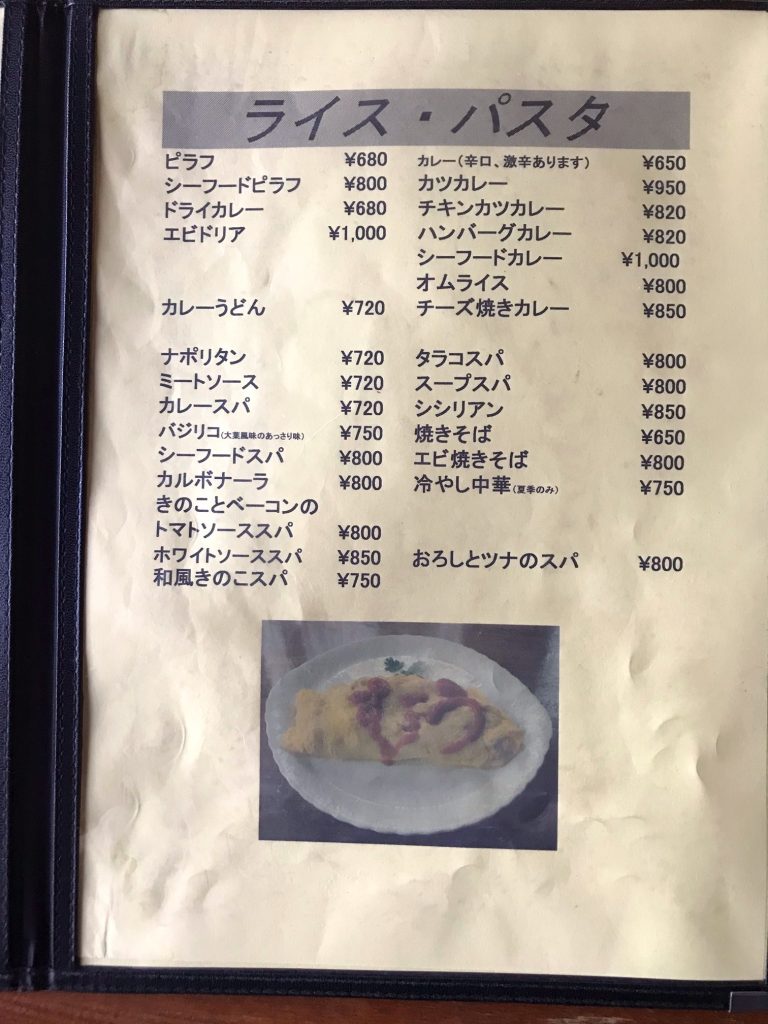 ライス・パスタ
ピラフ ¥680
シーフードピラフ ¥800
ドライカレー ¥680
エビドリア ¥1,000
カレーうどん ¥720
ナポリタン ¥720
ミートソース ¥720
カレースパ ¥720
バジリコ(大葉風味のあっさり味) ¥750
シーフードスパ ¥800
カルボナーラ ¥800
きのことベーコンの
トマトソーススパ ¥800
ホワイトソーススパ ¥850
和風きのこスパ ¥750
カレー(辛口、激辛あります) ¥650
カツカレー ¥950
チキンカツカレー ¥820
ハンバーグカレー ¥820
シーフードカレー ¥1,000
オムライス ¥800
チーズ焼きカレー ¥850
タラコスパ ¥800
スープスパ ¥800
シシリアン ¥850
焼きそば ¥650
エビ焼きそば ¥800
冷やし中華(夏季のみ) ¥750
おろしとツナのスパ ¥800